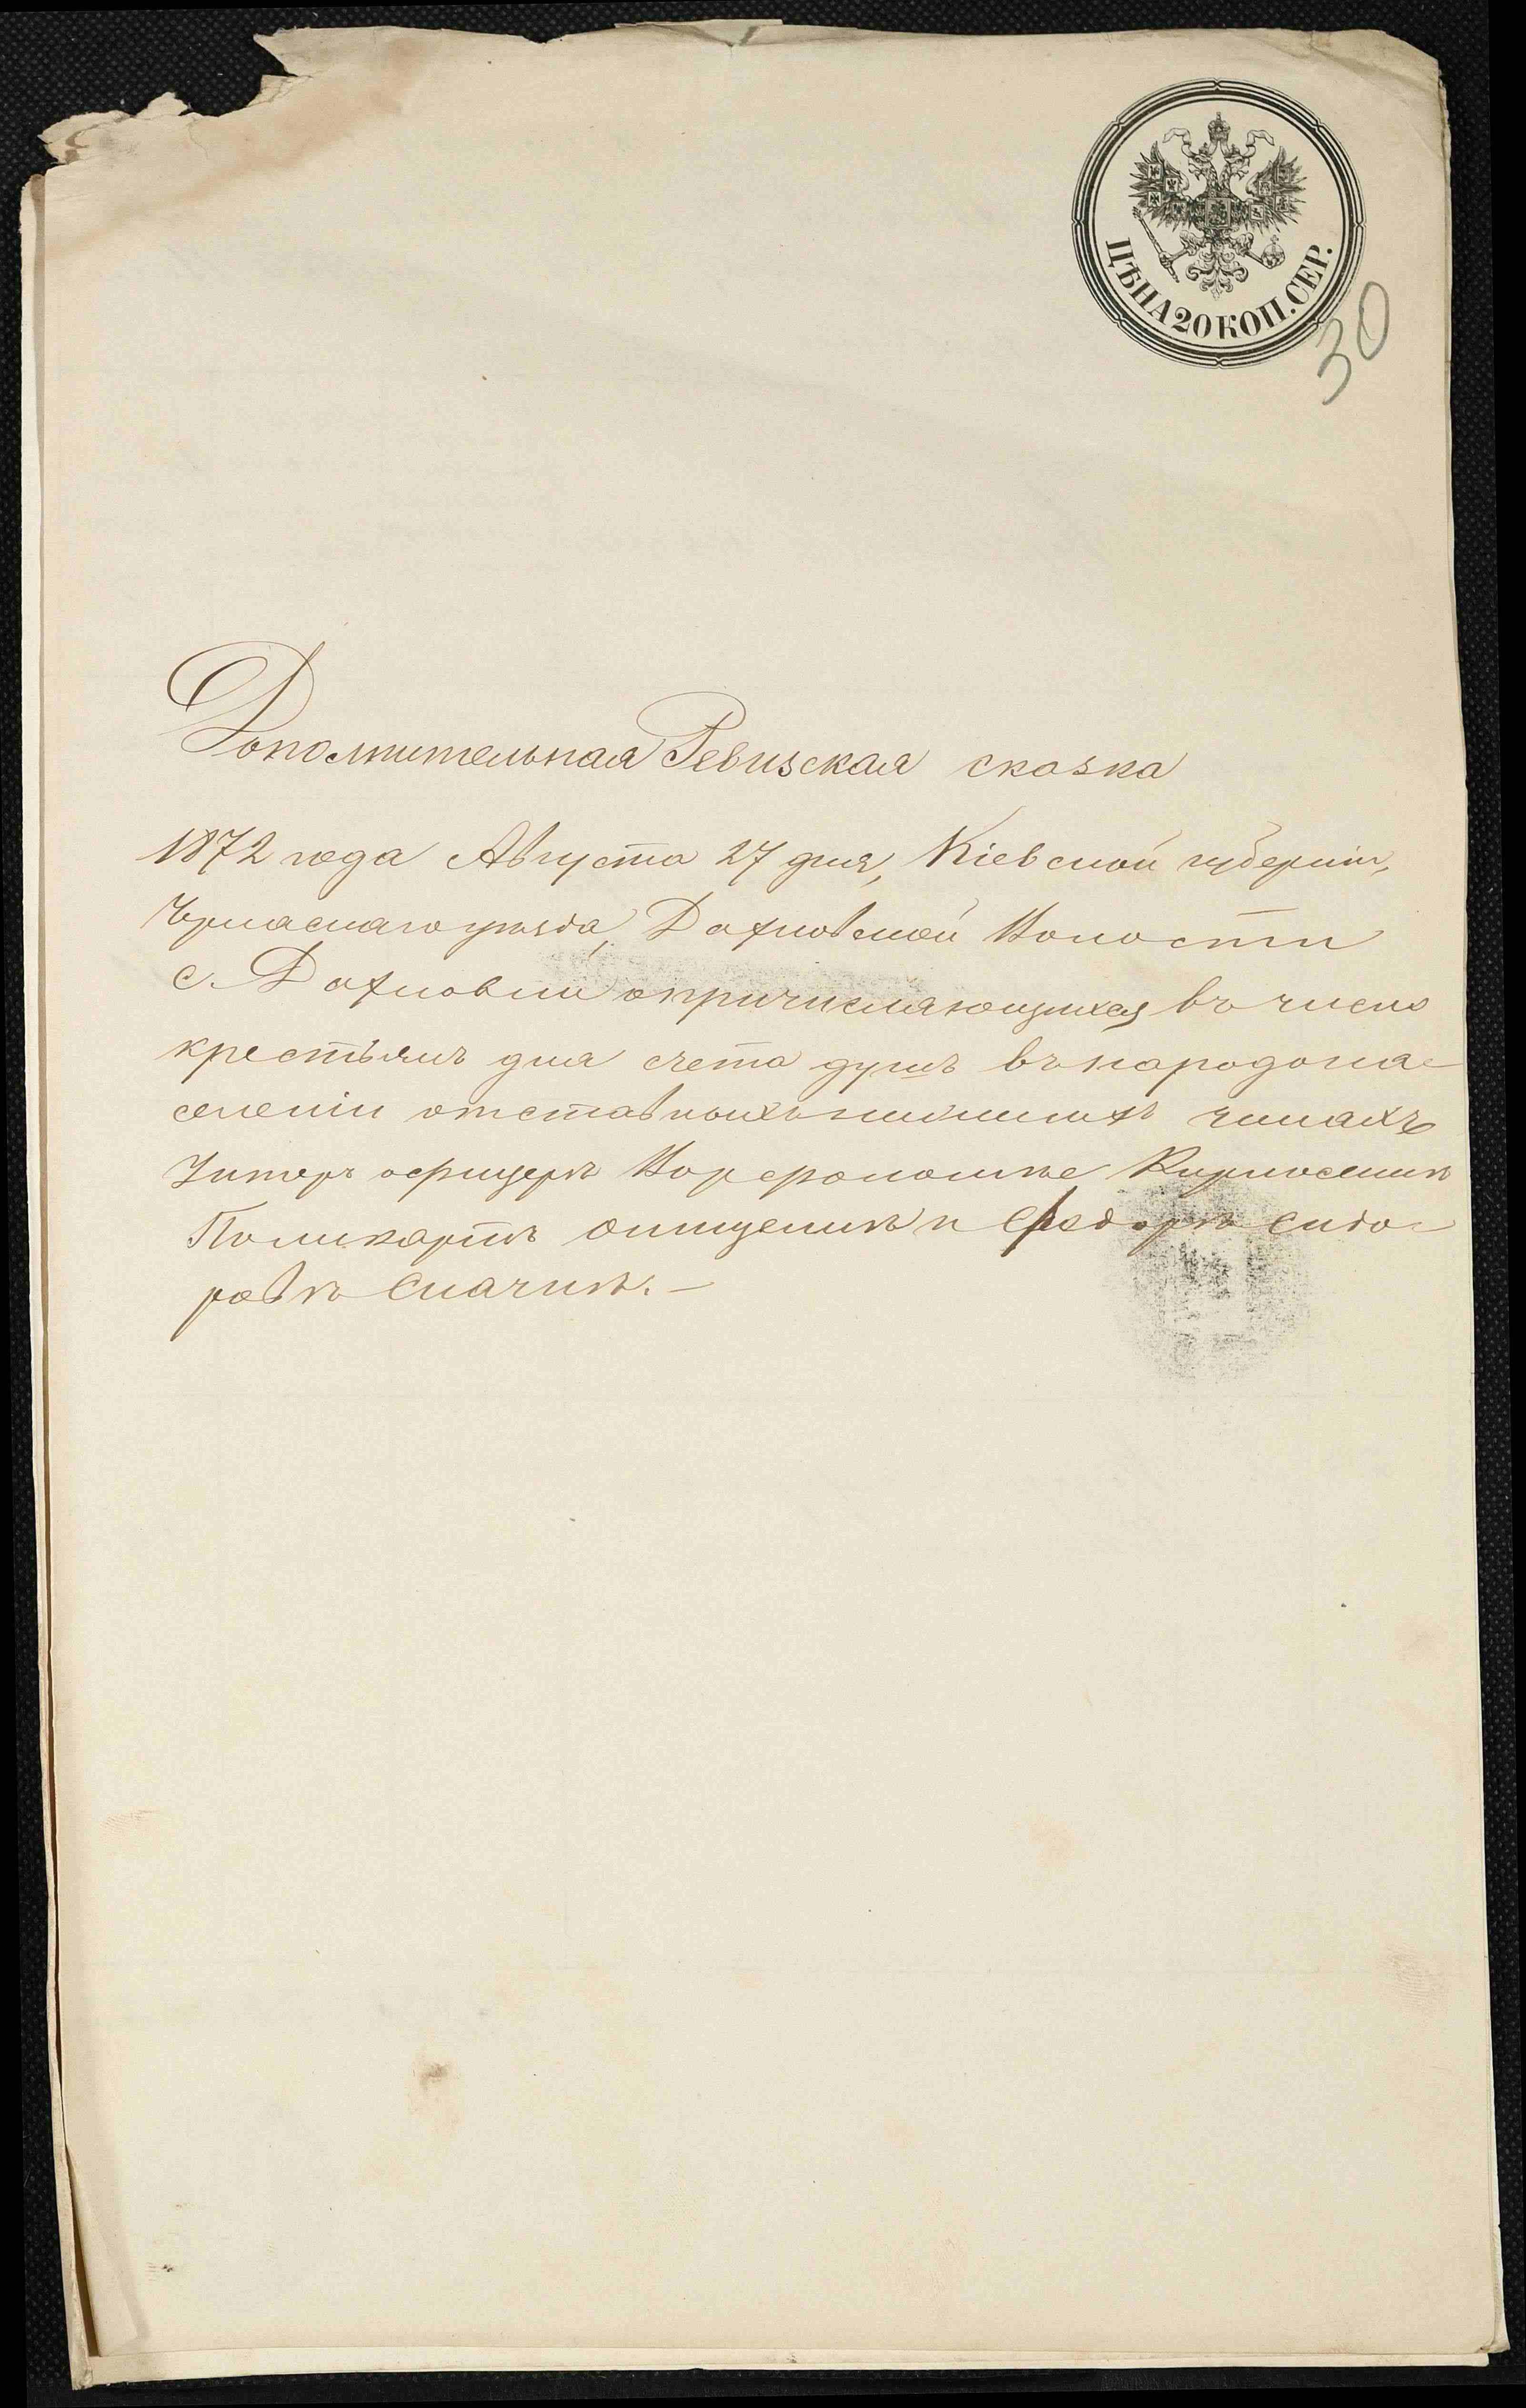 ЦѢНА 20 КОП. СЕР.
30
Дополнительная Ревизская сказка
1872 года Августа 27 дня, Кіевской губерніи,
Черкаскаго уѣзда, Дахновской Волости
с. Дахновки опричисляющихся въ число
крестьянъ для счета душъ въ народона-
селеніи отставныхъ нижнихъ чинахъ
Унтеръ офицеръ
Поликарпъ Онищенкѣ и Федорѣ Сидо-
ровѣ Скачкѣ. —